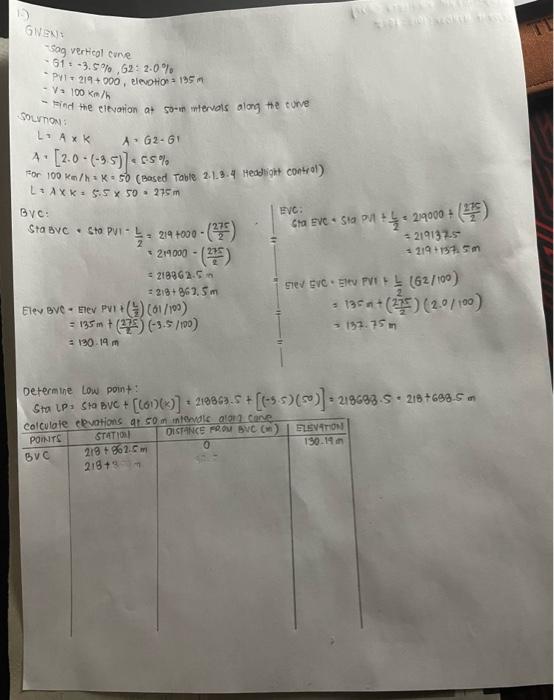 1.)
GIVEN:
- Sag vertical curve
- G1 = -3.5%, G2 = 2.0%
- PVI = 219 + 000, elevation = 135 m
- V = 100 km/h
- Find the elevation at 50-m intervals along the curve
SOLUTION:
L = A x K A = G2 - G1
A = [2.0 - (-3.5)] = 5.5%
For 100 km/h = K = 50 (Based Table 2.1.3.4 Headlight control)
L = A x K = 5.5 x 50 = 275 m
BVC:
Sta BVC = Sta PVI - L/2 = 219+000 - (275/2)
= 219000 - (275/2)
= 218862.5 m
= 218+862.5 m
Elev BVC = Elev PVI + (L/2) (G1/100)
= 135m + (275/2) (-3.5/100)
= 130.19 m
EVC:
Sta EVC = Sta PVI + L/2 = 219000 + (275/2)
= 219137.5
= 219+137.5m
Elev EVC = Elev PVI + L/2 (G2/100)
= 135m + (275/2) (2.0/100)
= 137.75 m
Determine Low point:
Sta LP = Sta BVC + [(G1)(K)] = 218863.5 + [(-3.5)(50)] = 218688.5 = 218+688.5 m
Calculate elevations at 50 m intervals along curve
POINTS STATION DISTANCE FROM BVC (m) ELEVATION
BVC 218 + 862.5m 0 130.19 m
218 +